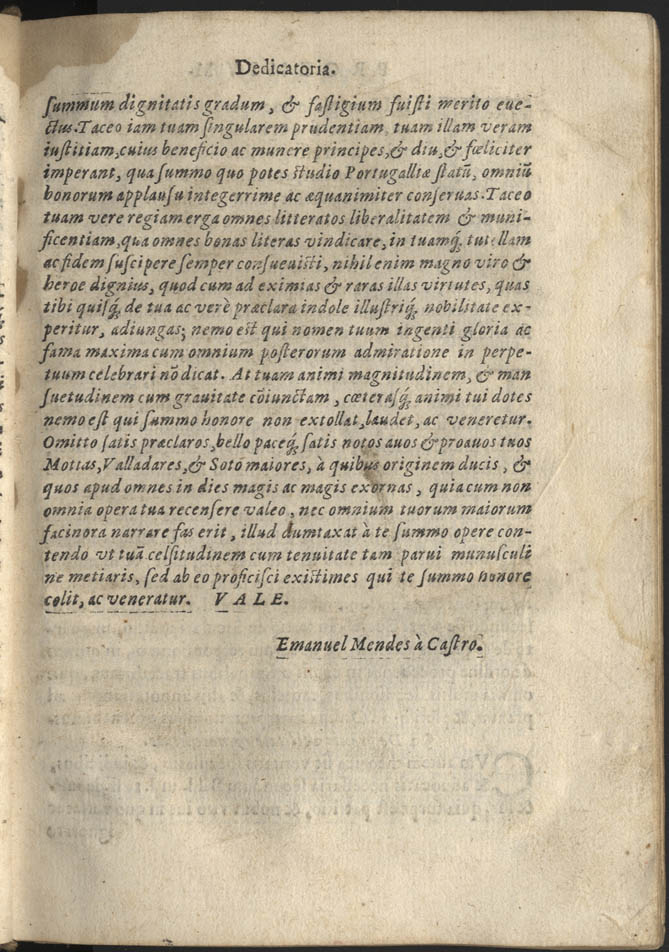 Dedicatoria.
ſummum dignitatis gradum, & faſtigium fuiſti merito eue-
ctus. Taceo iam tuam ſingularem prudentiam, tuam illam veram
iuſtitiam, cuius beneficio ac munere principes, & diu, & fœliciter
imperant, qua ſummo quo potes ſtudio Portugalliæ ſtatũ, omniũ
bonorum applauſu integerrime ac æquanimiter conſeruas. Taceo
tuam vere regiam erga omnes litteratos liberalitatem & muni-
ficentiam, qua omnes bonas literas vindicare, in tuamq́; tutellam
ac fidem ſuſcipere ſemper conſueuiſti, nihil enim magno viro &
heroe dignius, quod cum ad eximias & raras illas virtutes, quas
tibi quiſq́; de tua ac verè præclara indole illuſtriq́; nobilitate ex-
peritur, adiungas; nemo eſt qui nomen tuum ingenti gloria ac
fama maxima cum omnium poſterorum admiratione in perpe-
tuum celebrari nõ dicat. At tuam animi magnitudinem, & man
ſuetudinem cum grauitate cõiunctam, cœteraſq́; animi tui dotes
nemo eſt qui ſummo honore non extollat, laudet, ac veneretur.
Omitto ſatis præclaros, bello paceq́; ſatis notos auos & proauos tuos
Mottas, Valladares, & Soto maiores, à quibus originem ducis, &
quos apud omnes in dies magis ac magis exornas, quia cum non
omnia opera tua recenſere valeo, nec omnium tuorum maiorum
facinora narrare fas erit, illud dumtaxat à te ſummo opere con-
tendo vt tuã celſitudinem cum tenuitate tam parui munuſculi
ne metiaris, ſed ab eo proficiſci exiſtimes qui te ſummo honore
colit, ac veneratur. VALE.
Emanuel Mendes à Caſtro.